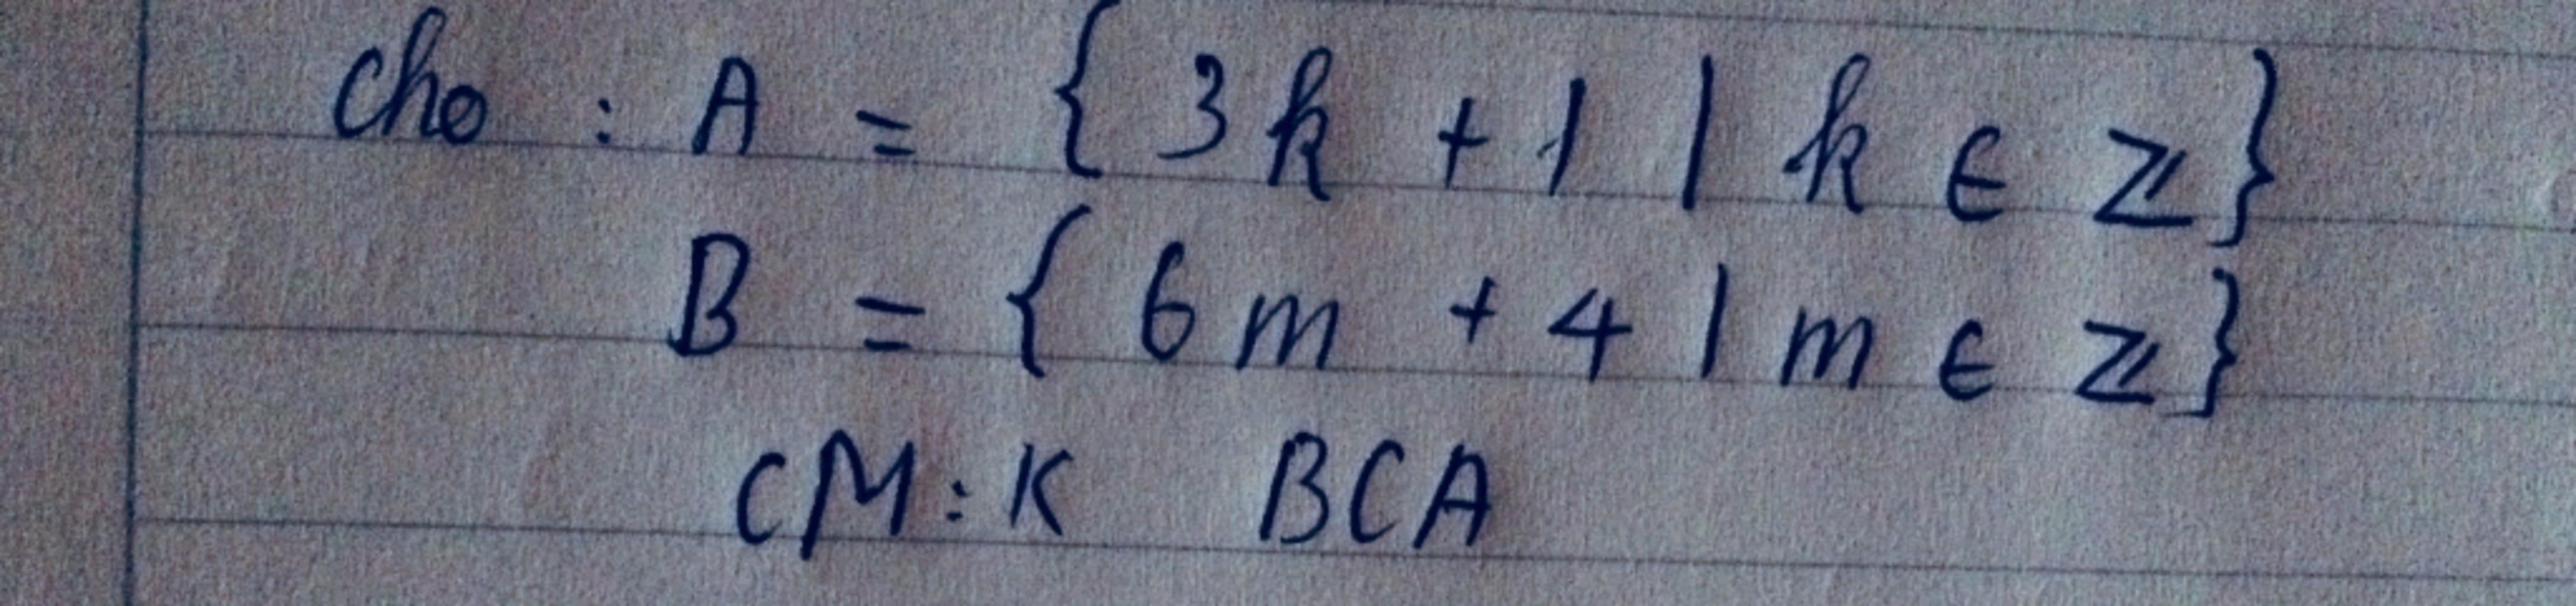 Cho : A = { 3k + 1 | k ∈ ℤ}
B = { 6m + 4 | m ∈ ℤ}
CM : K B⊂A